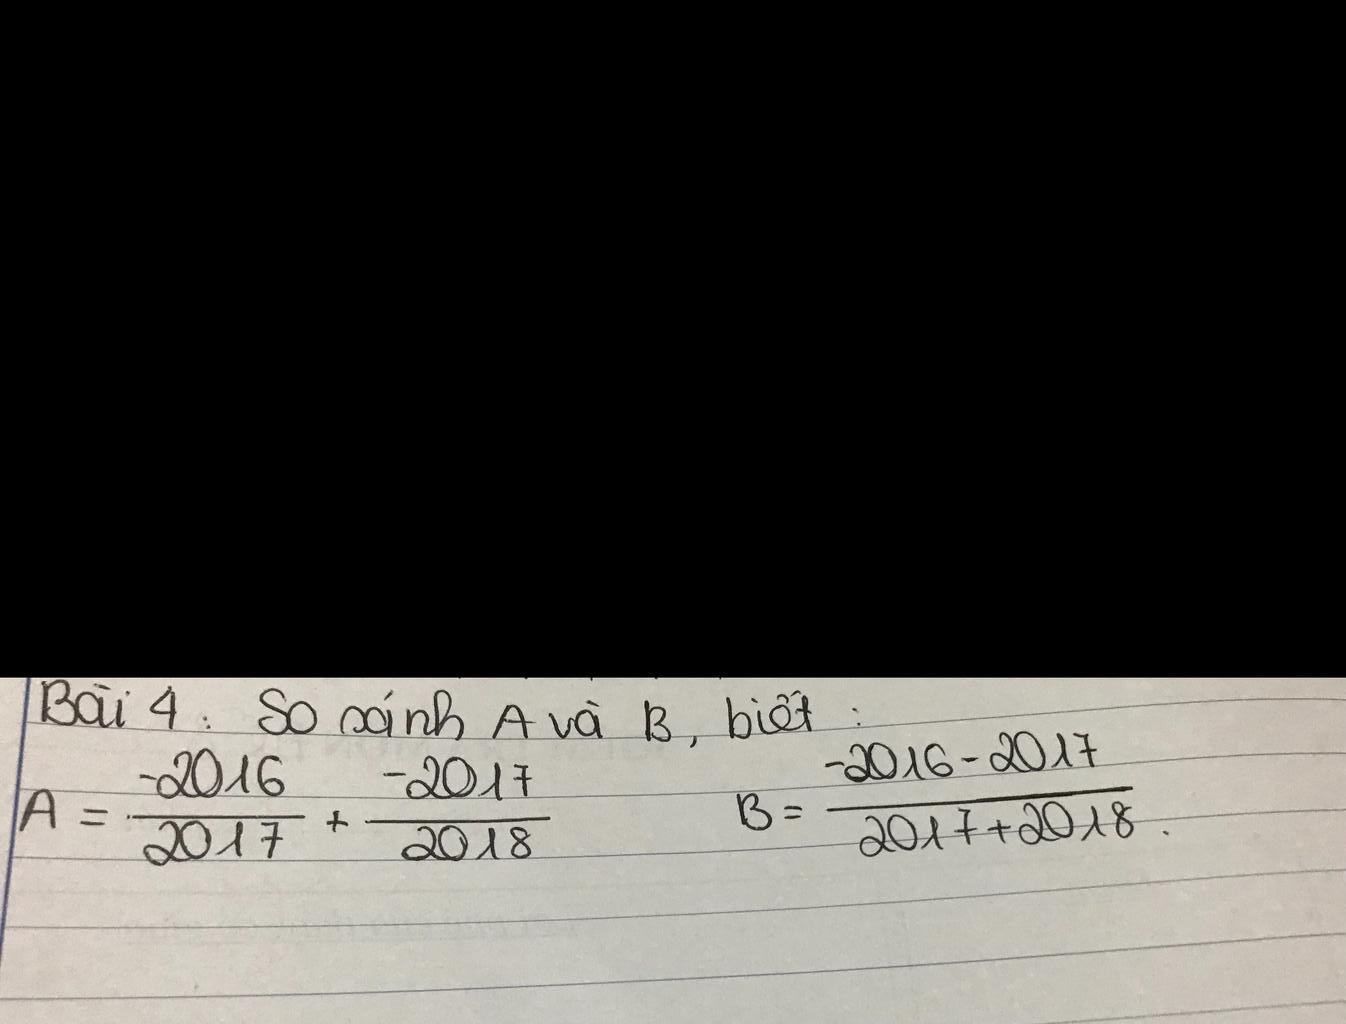 Bài 4: So sánh A và B, biết:
A = \frac{-2016}{2017} + \frac{-2017}{2018} B = \frac{-2016-2017}{2017+2018}.